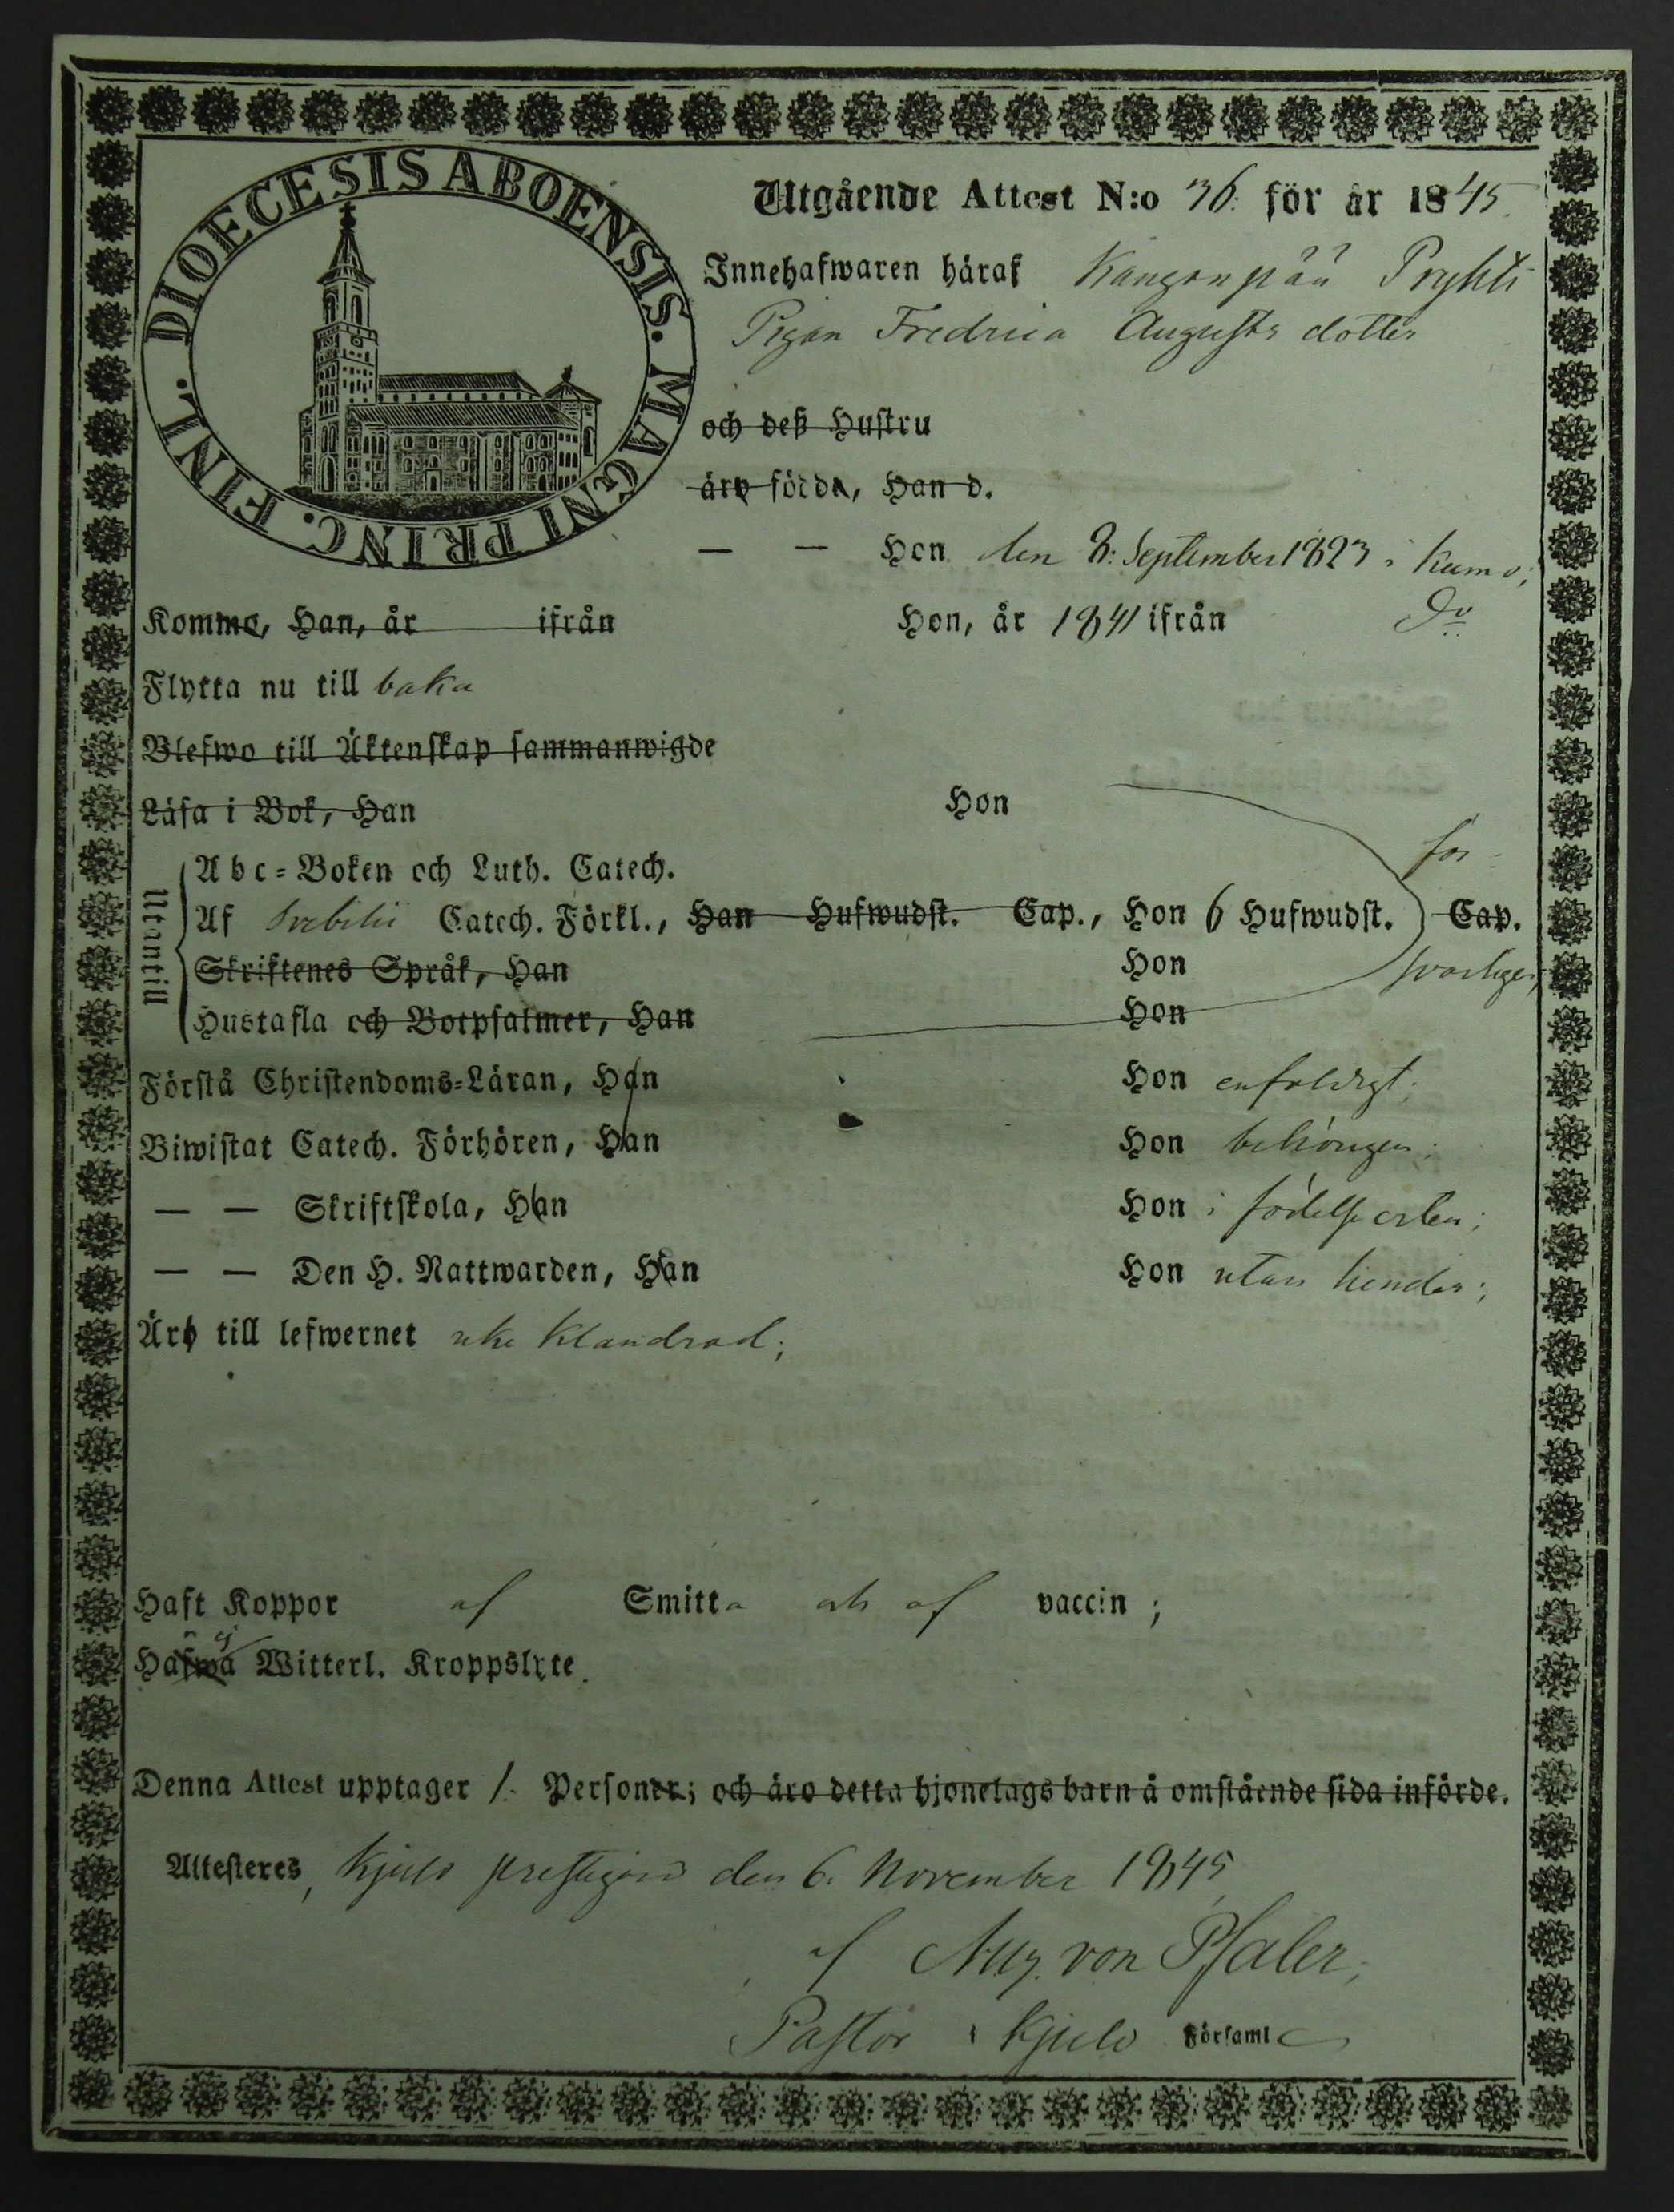 DIOECESIS ABOENSIS. MAGNI PRINC. FINL.
Utgående Attest N:o 36. för år 1845.
Innehafwaren häraf Kangonpää Prykti
Pigan Fredrica Augusts dotter
och deß Hustru
äro födda, Han d.
— — Hon den 8: September 1823 i Kumo;
Komme, Han, år ifrån Hon, år 1841 ifrån Do
Flytta nu till baka
Blefwo till Äktenskap sammanwigde
Läsa i Bok, Han Hon
för-
Utantill
Abc-Boken och Luth. Catech.
Af Svebilii Catech. Förkl., Han Hufwudst. Cap., Hon 6 Hufwudst. Cap.
Skriftenes Språk, Han Hon svarligen;
Hustafla och Botpsalmer, Han Hon
Förstå Christendoms-Läran, Han Hon enfoldigt;
Biwistat Catech. Förhören, Han Hon behörigen;
— — Skriftskola, Han Hon i födelse orten;
— — Den H. Nattwarden, Han Hon utan hinder;
Äro till lefwernet icke klandrad;
Haft Koppor af Smitta och af vaccin;
Hafwa ej Witterl. Kroppslyte.
Denna Attest upptager 1. Personer; och äro detta hjonelags barn å omstående sida införde.
Attesteres, Kjulo prestegård den 6. November 1845,
af Aug. von Pfaler,
Pastor i Kjulo Församl